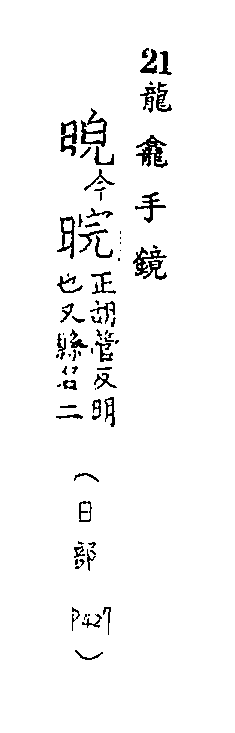 21龍龕手鏡
晥今晥正胡管反明
也又縣名二
（日部 P427）